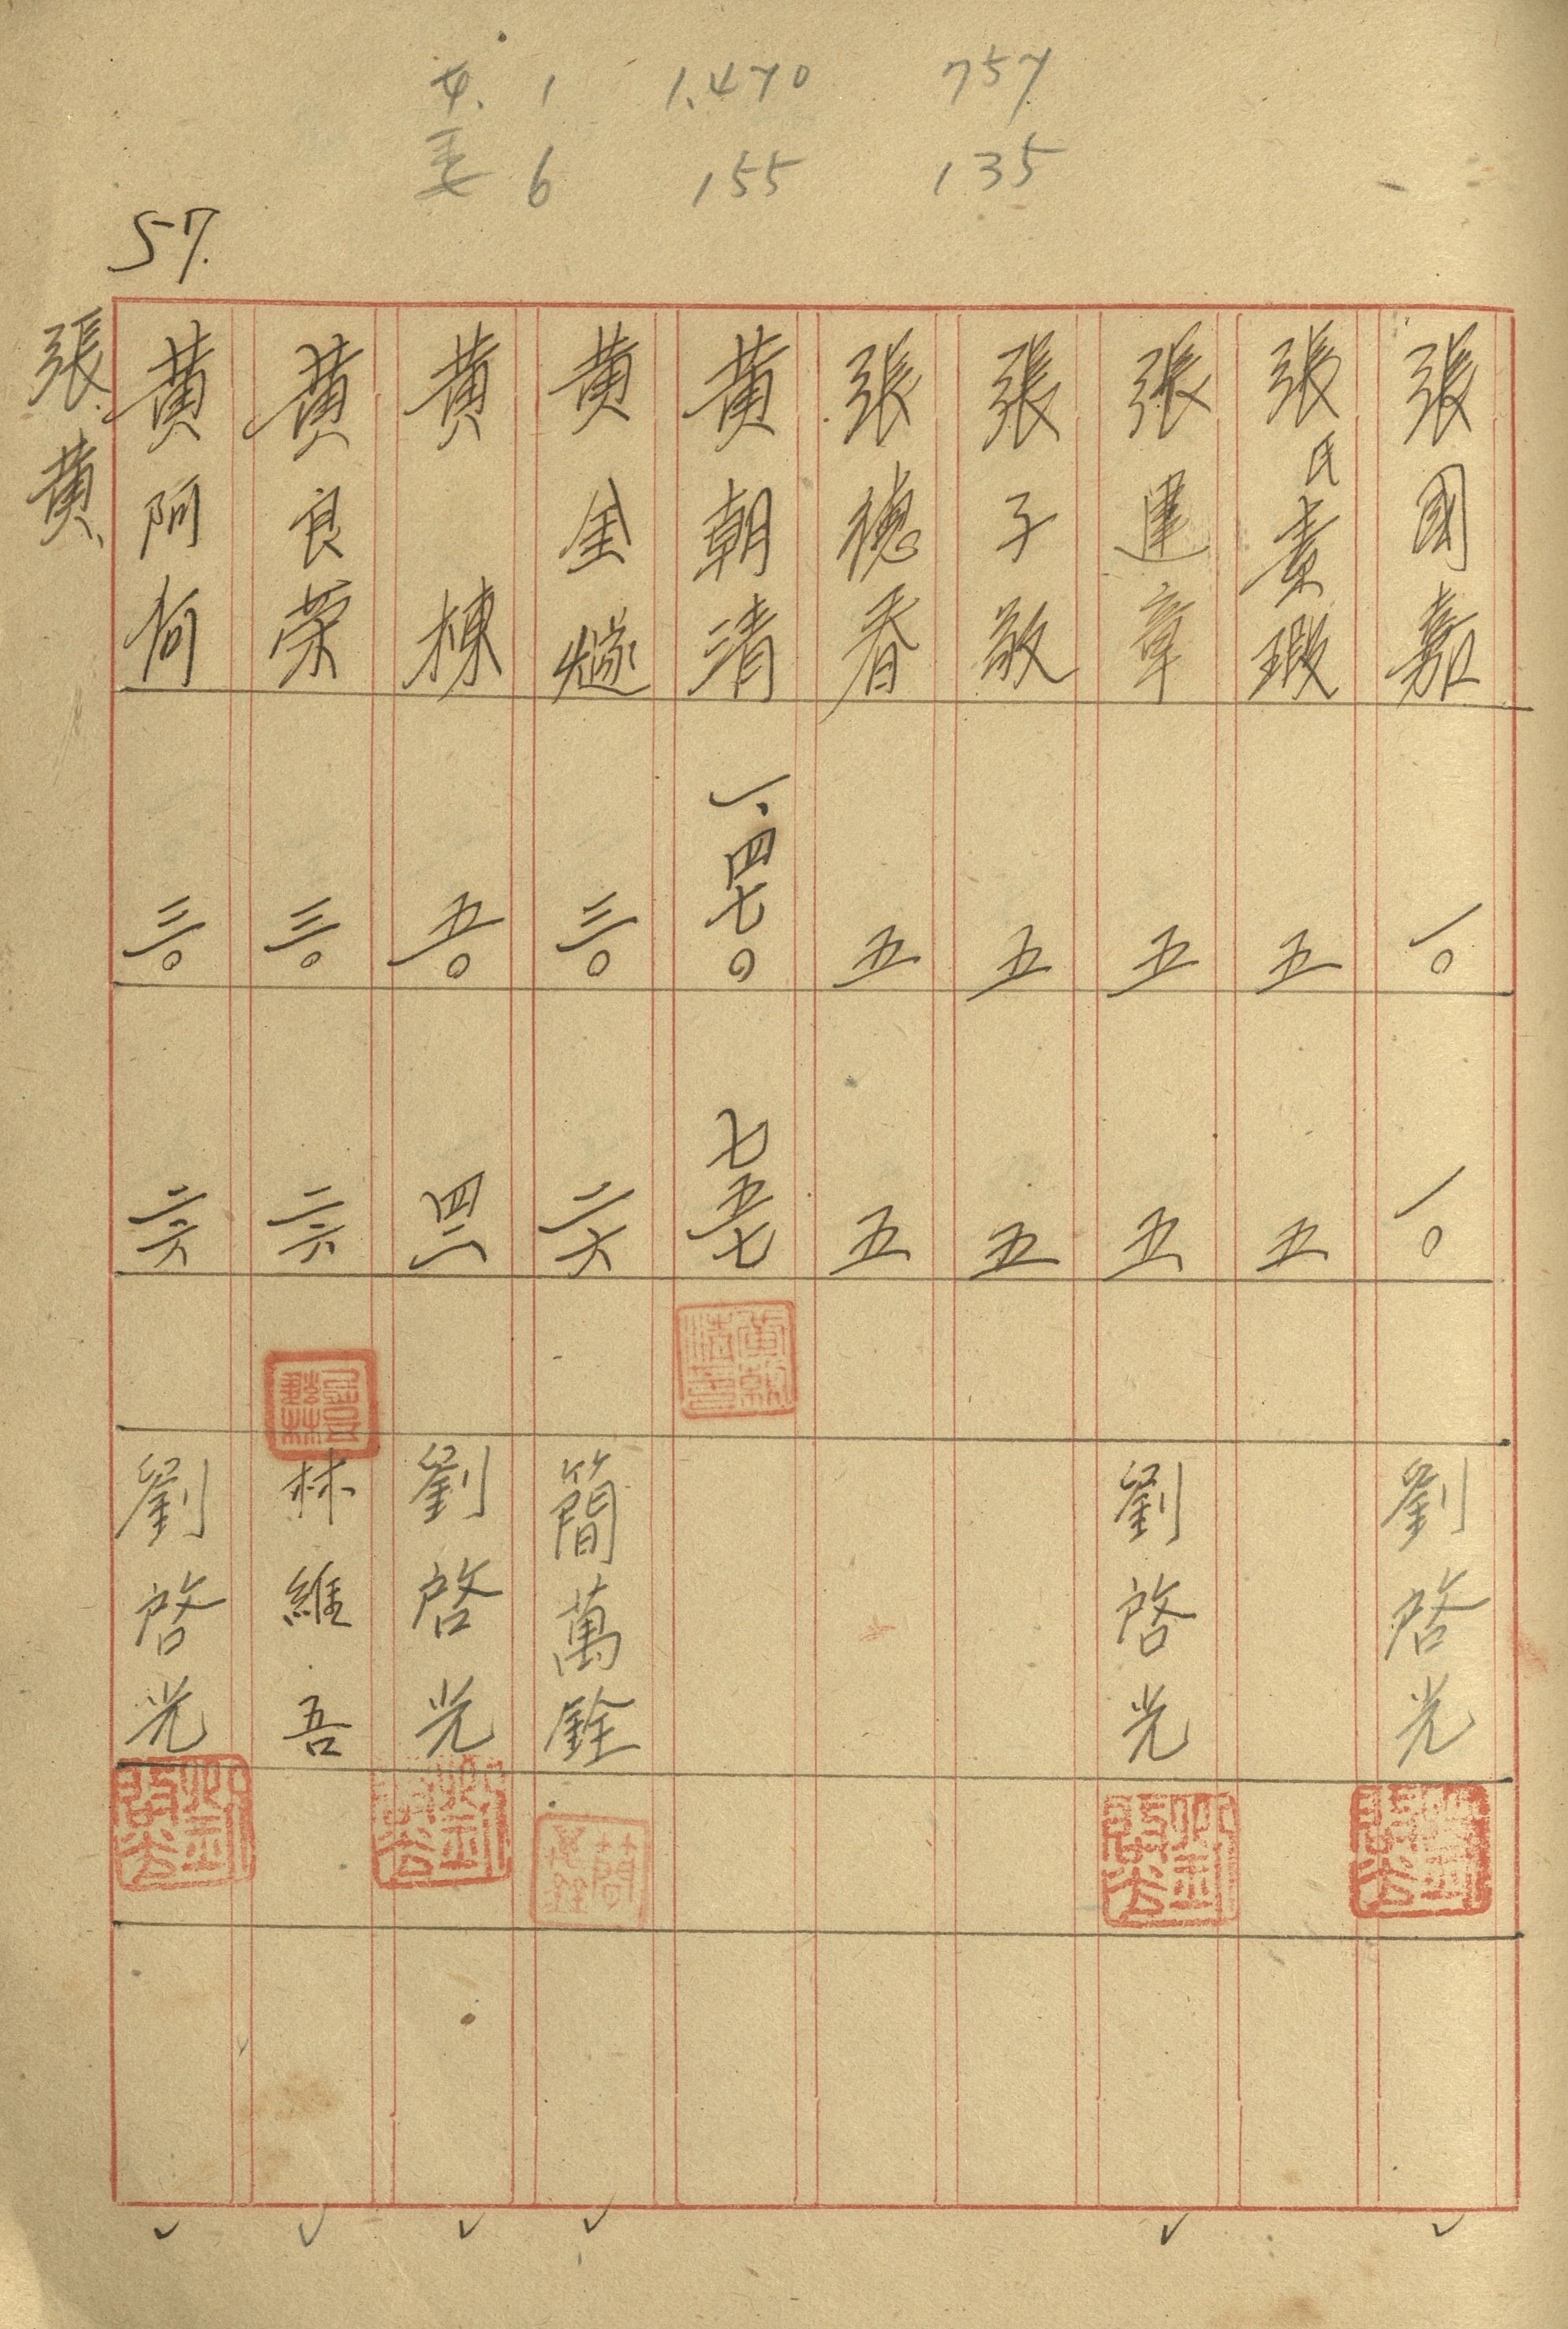 本. 1 1.470 757
委 6 155 135
57.
張 國 嘉 一〇 一〇 劉 啓 光
張氏素瑕 五 五
張 建 章 五 五 劉 啓 光
張 子 敬 五 五
張 德 春 五 五
黃 朝 清 一、四七〇 七五七
黃 金 㷮 三〇 二六 簡 萬 銓
黃 棟 五〇 四一 劉 啓 光
黃 良 榮 三〇 二六 林 維 吾
黃 阿 狗 三〇 二六 劉 啓 光
張. 黃.